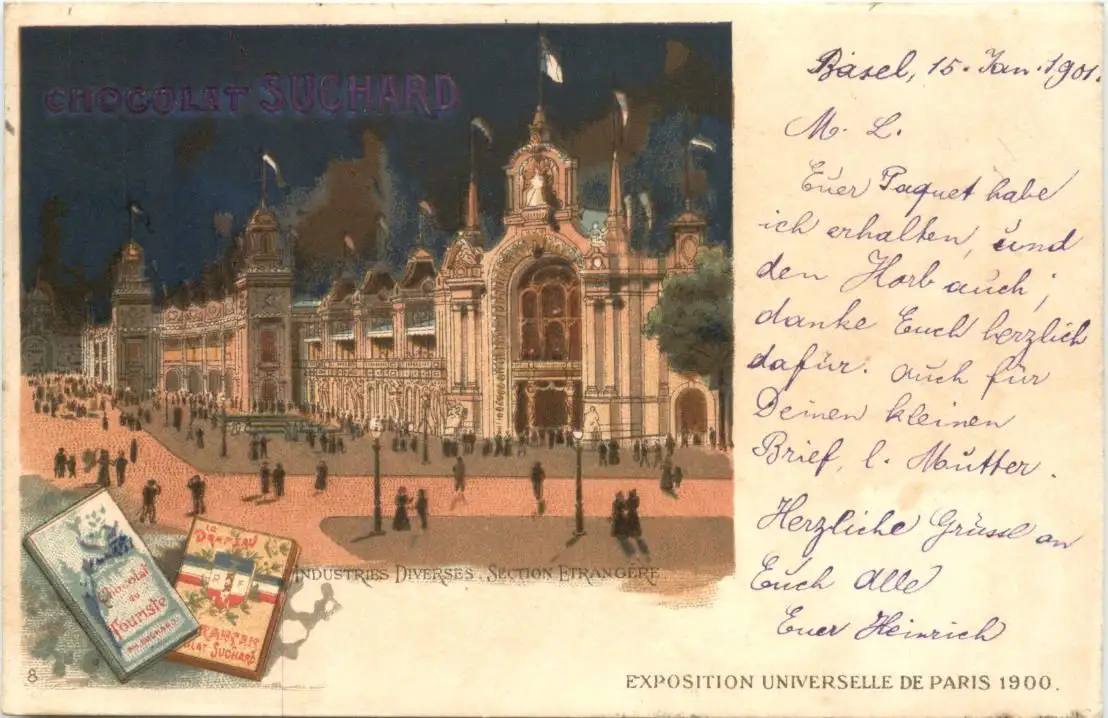 CHOCOLAT SUCHARD
Basel, 15. Jan. 1901.
M. L.
Euer Paquet habe
ich erhalten, und
den Korb auch;
danke Euch herzlich
dafür. auch für
Deinen kleinen
Brief, l. Mutter.
Herzliche Grüsse an
Euch Alle
Euer Heinrich
INDUSTRIES DIVERSES. SECTION ETRANGÈRE
Chocolat
du
Touriste
PH. SUCHARD
LE
DRAPEAU
R F
FRANÇAIS
CHOCOLAT SUCHARD
8
EXPOSITION UNIVERSELLE DE PARIS 1900.